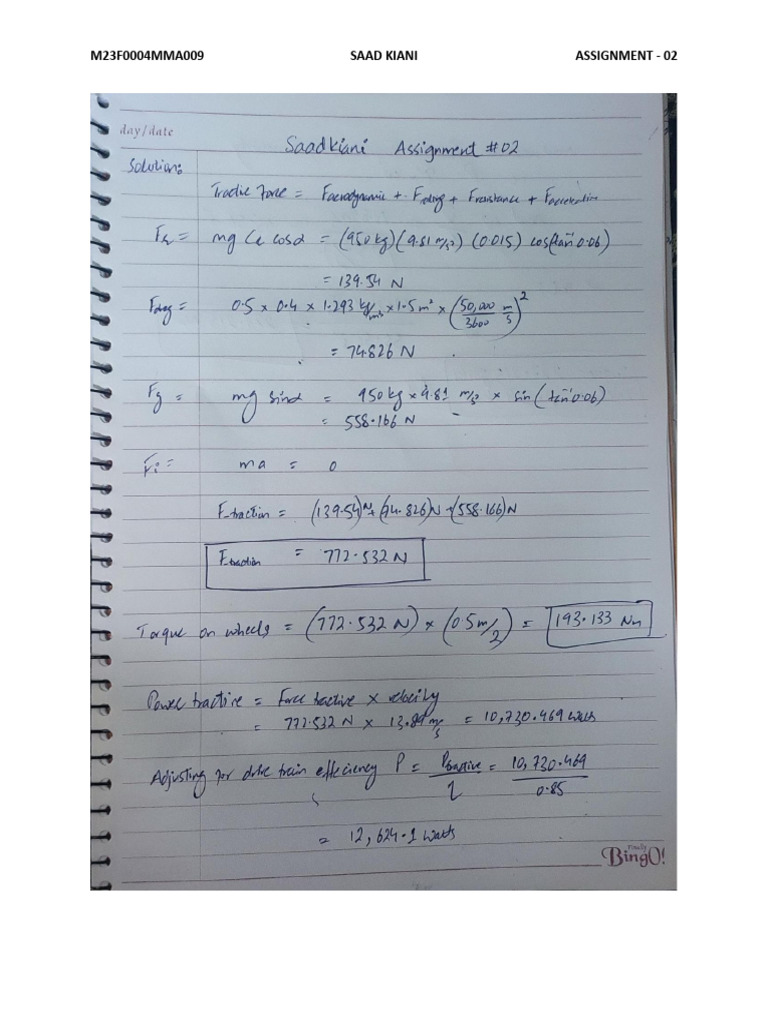 M23F0004MMA009 SAAD KIANI ASSIGNMENT - 02
day/date
Saad kiani Assignment #02
Solution:
Tractive Force = Faerodynamic + Frolling + Fresistance + Facceleration
Fr = mg Cr cosα = (950 kg)(9.81 m/s²) (0.015) cos(tan⁻¹ 0.06)
= 139.54 N
Fdrag = 0.5 × 0.4 × 1.293 kg/m³ × 1.5 m² × (50,000/3600 m/s)²
= 74.826 N
Fg = mg sinα = 950 kg × 9.81 m/s² × sin(tan⁻¹ 0.06)
= 558.166 N
Fi = ma = 0
F-traction = (139.54)N + (74.826)N + (558.166)N
F-traction = 772.532 N
Torque on wheels = (772.532 N) × (0.5 m/2) = 193.133 Nm
Power tractive = Force tractive × velocity
= 772.532 N × 13.89 m/s = 10,730.469 watts
Adjusting for drive train efficiency P = Ptractive/η = 10,730.469/0.85
= 12,624.1 watts
BingO!